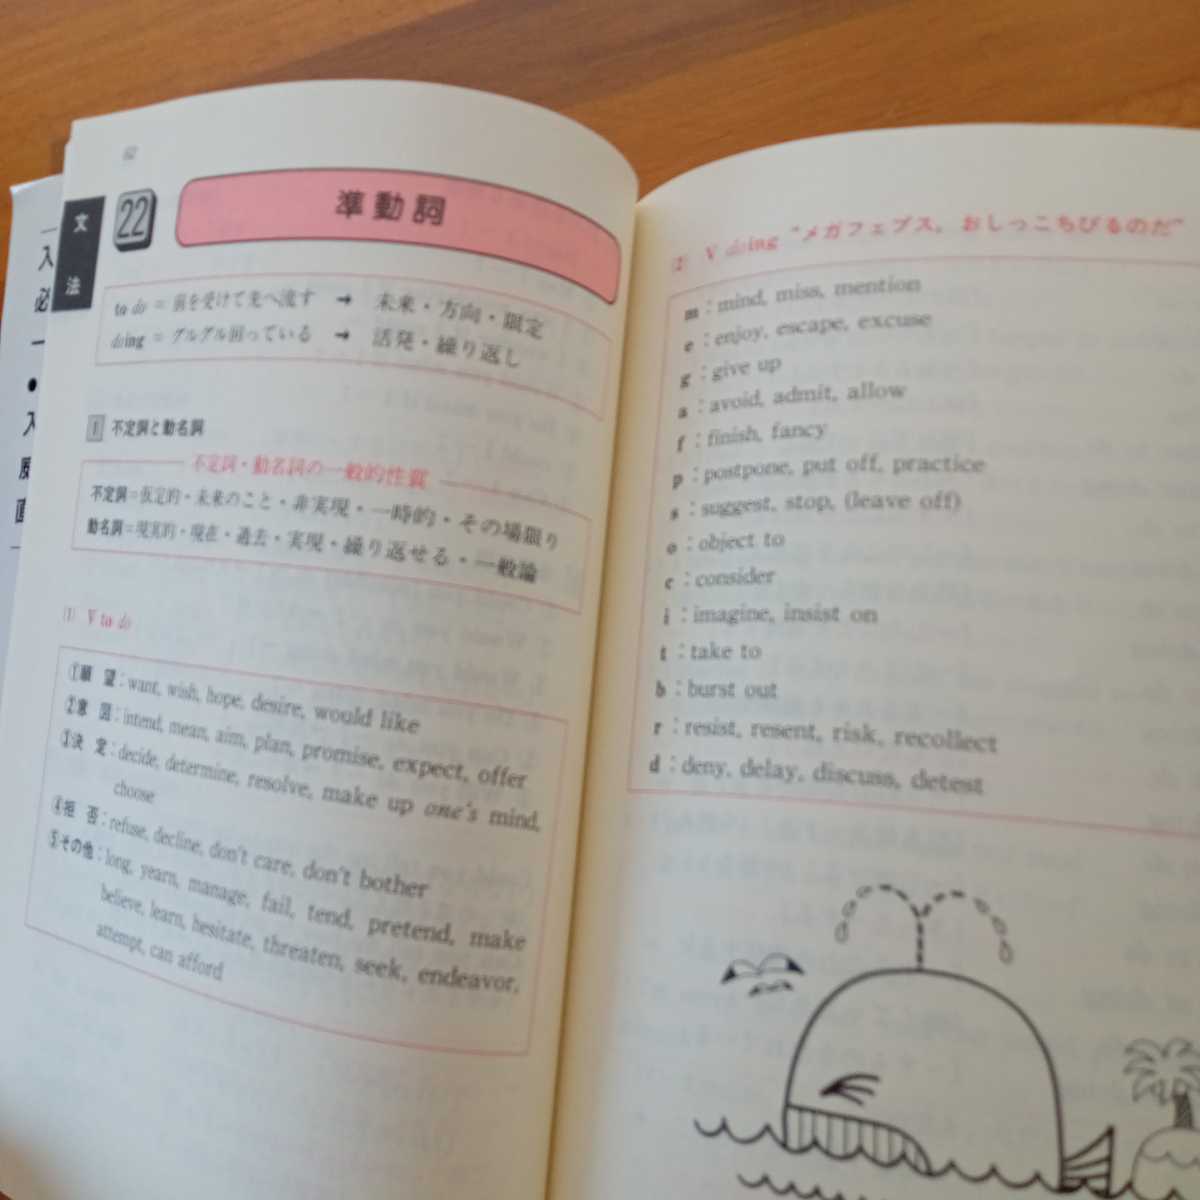 62
文法
22
準動詞
to do = 前を受けて先へ流す → 未来・方向・限定
doing = グルグル回っている → 活発・繰り返し
1 不定詞と動名詞
不定詞・動名詞の一般的性質
不定詞=仮定的・未来のこと・非実現・一時的・その場限り
動名詞=現実的・現在・過去・実現・繰り返せる・一般論
(1) V to do
①願望:want, wish, hope, desire, would like
②意図:intend, mean, aim, plan, promise, expect, offer
③決定:decide, determine, resolve, make up one's mind,
choose
④拒否:refuse, decline, don't care, don't bother
⑤その他:long, yearn, manage, fail, tend, pretend, make
believe, learn, hesitate, threaten, seek, endeavor,
attempt, can afford
(2) V doing “メガフェプス, おしっこちびるのだ”
m:mind, miss, mention
e:enjoy, escape, excuse
g:give up
a:avoid, admit, allow
f:finish, fancy
p:postpone, put off, practice
s:suggest, stop, (leave off)
o:object to
c:consider
i:imagine, insist on
t:take to
b:burst out
r:resist, resent, risk, recollect
d:deny, delay, discuss, detest
入
必
●
入